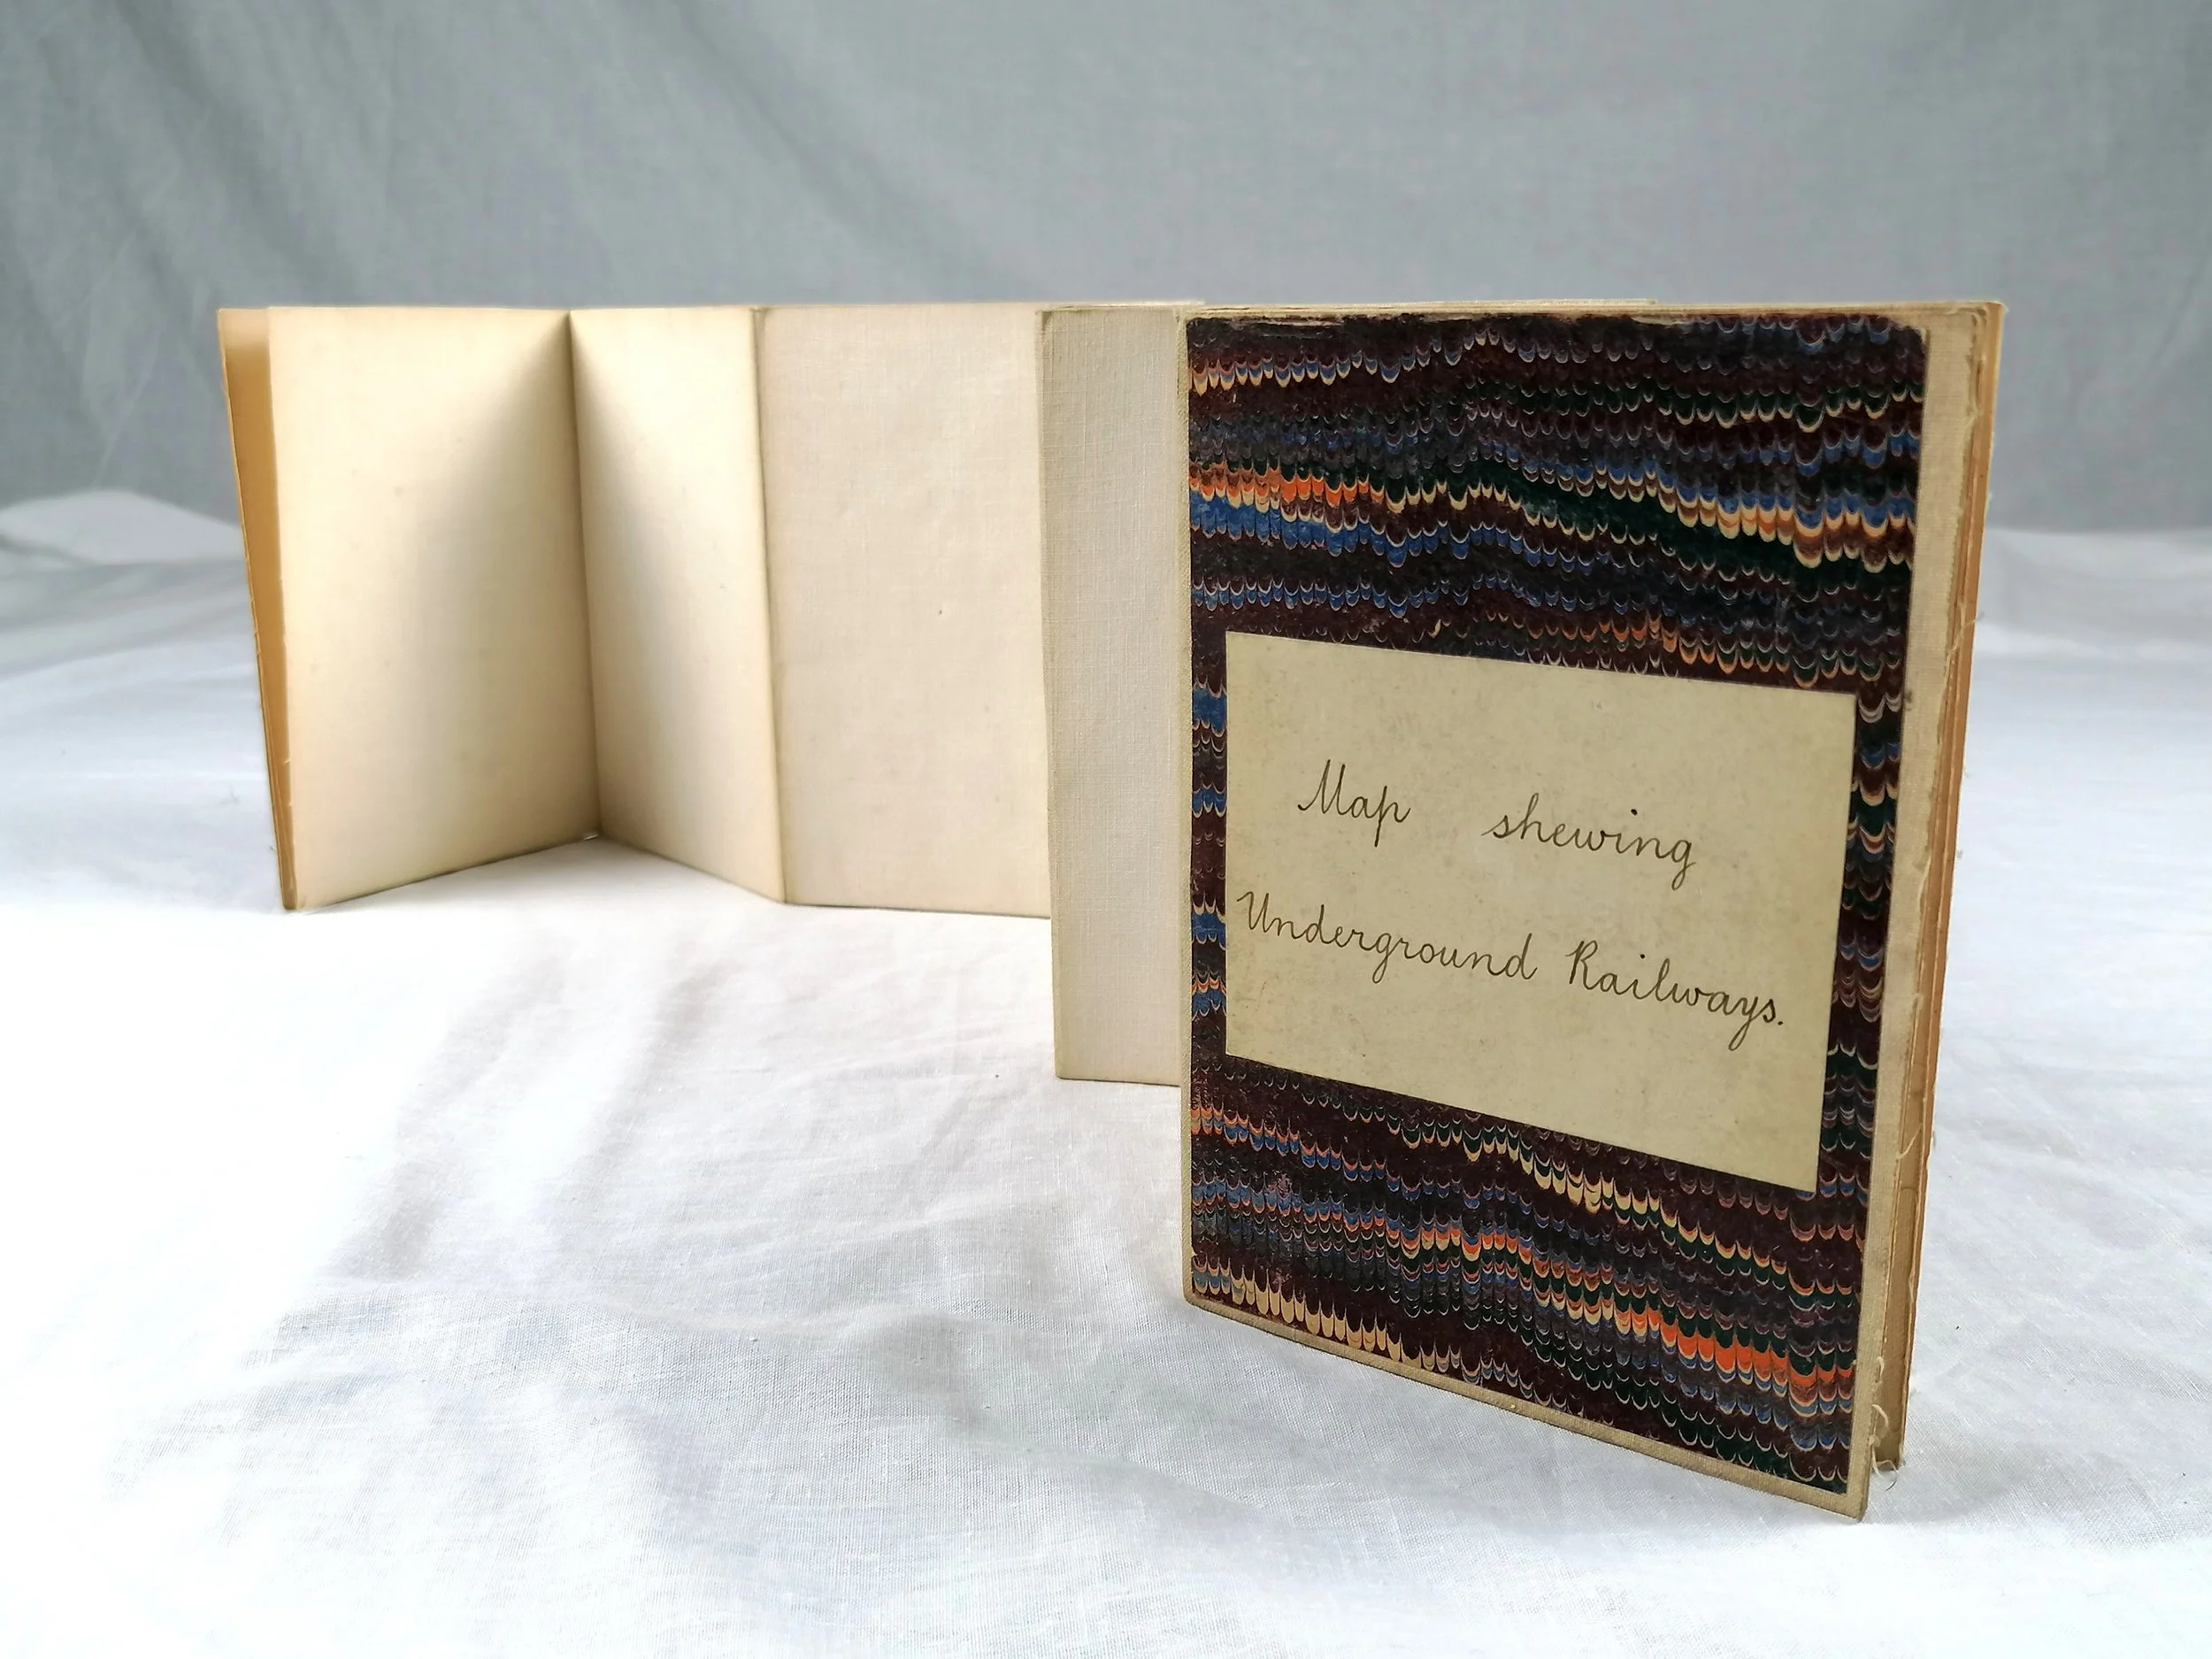 Map shewing
Underground Railways.